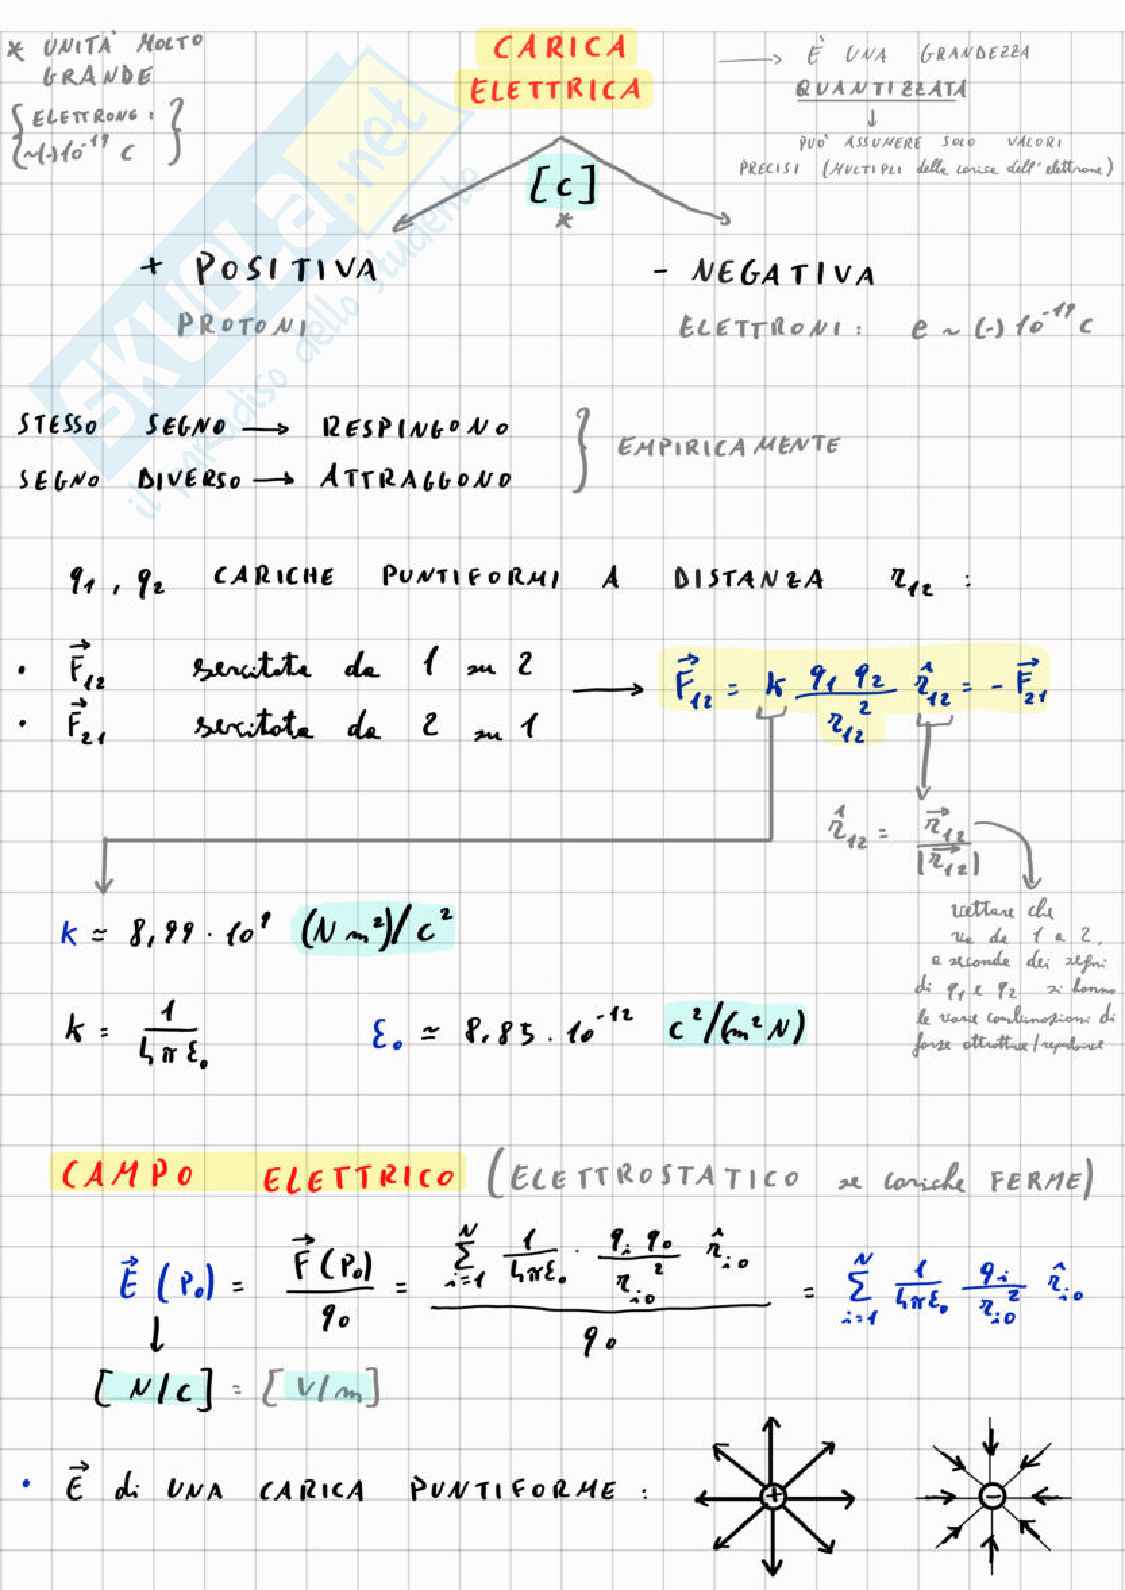 * UNITÀ MOLTO
GRANDE
{ELETTRONE:
~(-)10⁻¹⁹ C}
CARICA
ELETTRICA
⟶ È UNA GRANDEZZA
QUANTIZZATA
↓
PUÒ ASSUMERE SOLO VALORI
PRECISI (MULTIPLI della carica dell'elettrone)
[C]
*
+ POSITIVA
PROTONI
- NEGATIVA
ELETTRONI: e ~ (-) 10⁻¹⁹ C
SKUOLA.net
il paradiso dello studente
STESSO SEGNO ⟶ RESPINGONO
SEGNO DIVERSO ⟶ ATTRAGGONO
} EMPIRICAMENTE
q₁, q₂ CARICHE PUNTIFORMI A DISTANZA r₁₂ :
• F⃗₁₂ sercitata da 1 su 2
• F⃗₂₁ sercitata da 2 su 1
⟶ F⃗₁₂ = k (q₁ q₂)/r₁₂² r̂₁₂ = - F⃗₂₁
r̂₁₂ = r⃗₁₂/|r⃗₁₂|
vettore che
va da 1 a 2,
a seconda dei segni
di q₁ e q₂ si hanno
le varie combinazioni di
forze attrattive/repulsive
k ≃ 8,99 · 10⁹ (N m²)/C²
k = 1/(4πε₀) ε₀ ≃ 8,85 · 10⁻¹² C²/(m²N)
CAMPO ELETTRICO (ELETTROSTATICO se cariche FERME)
E⃗ (P₀) = F⃗(P₀)/q₀ = (Σᵢ₌₁ᴺ 1/(4πε₀) · (qᵢ q₀)/rᵢ₀² r̂ᵢ₀)/q₀ = Σᵢ₌₁ᴺ 1/(4πε₀) qᵢ/rᵢ₀² r̂ᵢ₀
↓
[N/C] = [V/m]
• E⃗ di UNA CARICA PUNTIFORME :
+
-